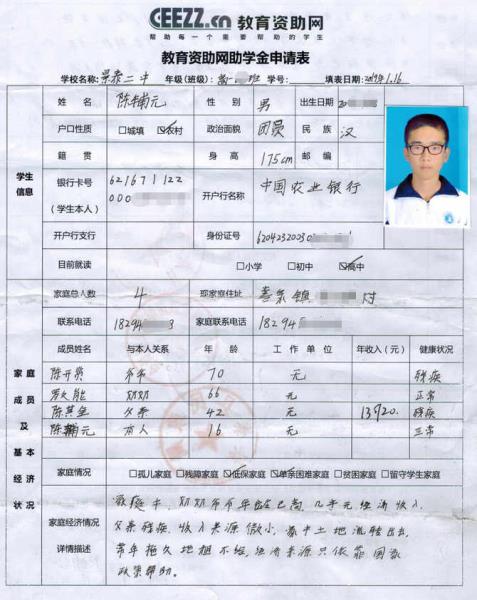 CEEZZ.cn 教育资助网
帮助每一个需要帮助的学生
教育资助网助学金申请表
学校名称:景泰二中 年级(班级):高 班 学号: 填表日期:2019.1.16
学生信息
姓名 陈辅元 性别 男 出生日期 20
户口性质 □城填 ☑农村 政治面貌 团员 民族 汉
籍贯 身高 175cm 邮编
银行卡号(学生本人) 621671122000 开户行名称 中国农业银行
开户行支行 身份证号 6204232003
目前就读 □小学 □初中 ☑高中
家庭成员及基本经济状况
家庭总人数 4 现家庭住址 喜泉镇 村
联系电话 18294 3 家庭联系电话 18294
成员姓名 与本人关系 年龄 工作单位 年收入(元) 健康状况
陈开 爷爷 70 无 残疾
罗 能 奶奶 66 无 正常
陈其 父亲 42 无 13920. 残疾
陈辅元 本人 16 无 正常
家庭情况 □孤儿家庭 □残障家庭 ☑低保家庭 ☑单亲困难家庭 □贫困家庭 □留守学生家庭
家庭经济情况详情描述
家庭中,奶奶爷爷年龄已高,几乎无经济收入,
父亲残疾,收入来源微小,家中土地流转出去,
常年拖欠地租不给,经济来源只依靠国家
政策帮助。